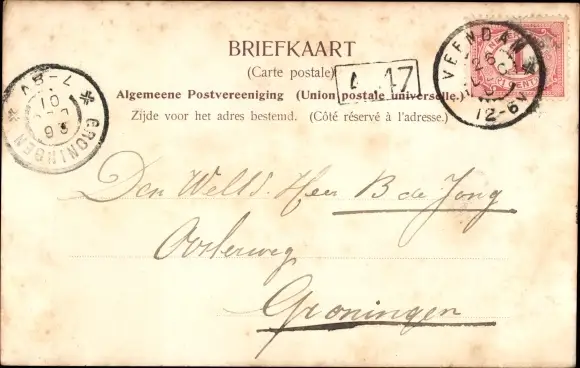 BRIEFKAART
(Carte postale)
Algemeene Postvereeniging (Union postale universelle.)
Zijde voor het adres bestemd. (Côté réservé à l'adresse.)
A 17
VEENDAM
12-6V
GRONINGEN
7-8V
Den WelEd. Heer B de Jong
Oosterweg
Groningen